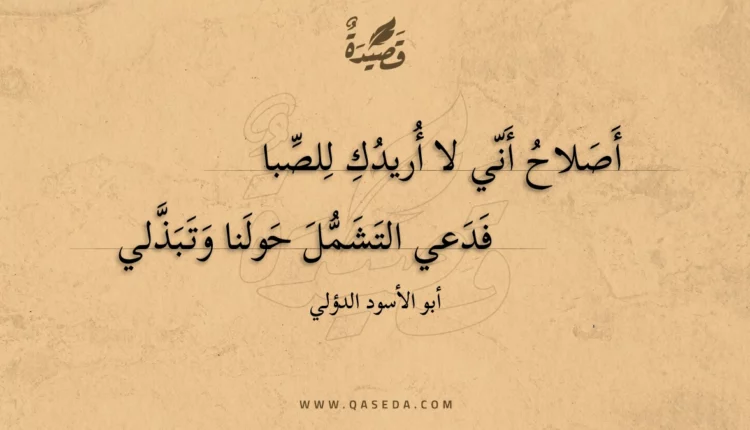 قَصِيدَةٌ
أَصَلاحُ أَنّي لا أُريدُكِ لِلصِّبا
فَدَعي التَشَمُّلَ حَولَنا وَتَبَذَّلي
أبو الأسود الدؤلي
WWW.QASEDA.COM